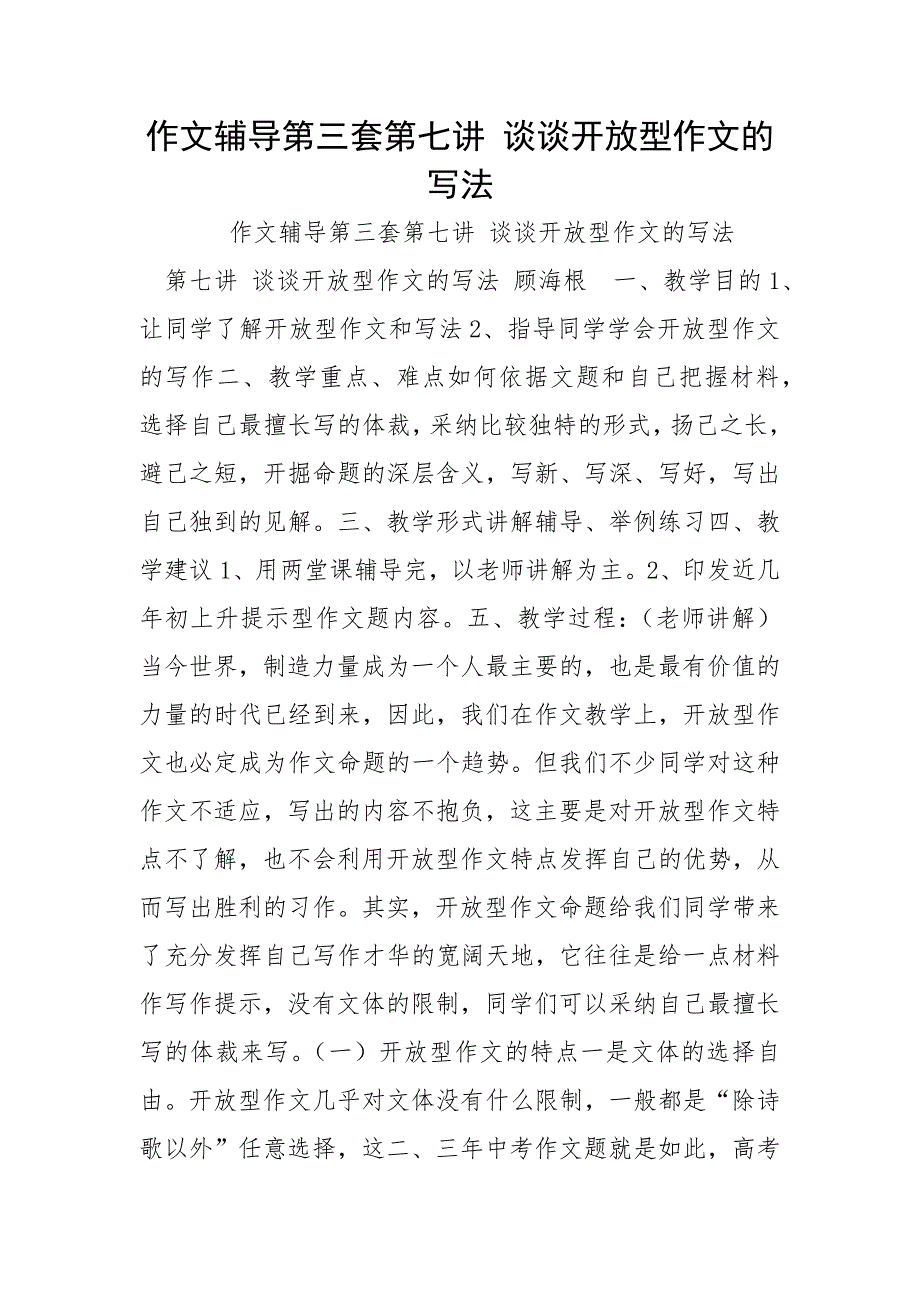 作文辅导第三套第七讲 谈谈开放型作文的
写法
作文辅导第三套第七讲 谈谈开放型作文的写法
第七讲 谈谈开放型作文的写法 顾海根　一、教学目的1、
让同学了解开放型作文和写法2、指导同学学会开放型作文
的写作二、教学重点、难点如何依据文题和自己把握材料，
选择自己最擅长写的体裁，采纳比较独特的形式，扬己之长，
避己之短，开掘命题的深层含义，写新、写深、写好，写出
自己独到的见解。三、教学形式讲解辅导、举例练习四、教
学建议1、用两堂课辅导完，以老师讲解为主。2、印发近几
年初上升提示型作文题内容。五、教学过程：（老师讲解）
当今世界，制造力量成为一个人最主要的，也是最有价值的
力量的时代已经到来，因此，我们在作文教学上，开放型作
文也必定成为作文命题的一个趋势。但我们不少同学对这种
作文不适应，写出的内容不抱负，这主要是对开放型作文特
点不了解，也不会利用开放型作文特点发挥自己的优势，从
而写出胜利的习作。其实，开放型作文命题给我们同学带来
了充分发挥自己写作才华的宽阔天地，它往往是给一点材料
作写作提示，没有文体的限制，同学们可以采纳自己最擅长
写的体裁来写。（一）开放型作文的特点一是文体的选择自
由。开放型作文几乎对文体没有什么限制，一般都是“除诗
歌以外”任意选择，这二、三年中考作文题就是如此，高考